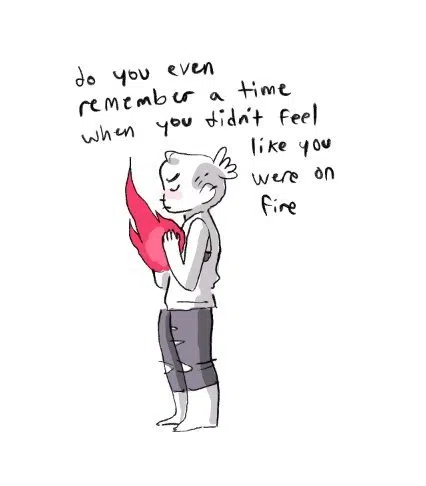 do you even
remember a time
when you didn't feel
like you
were on
fire